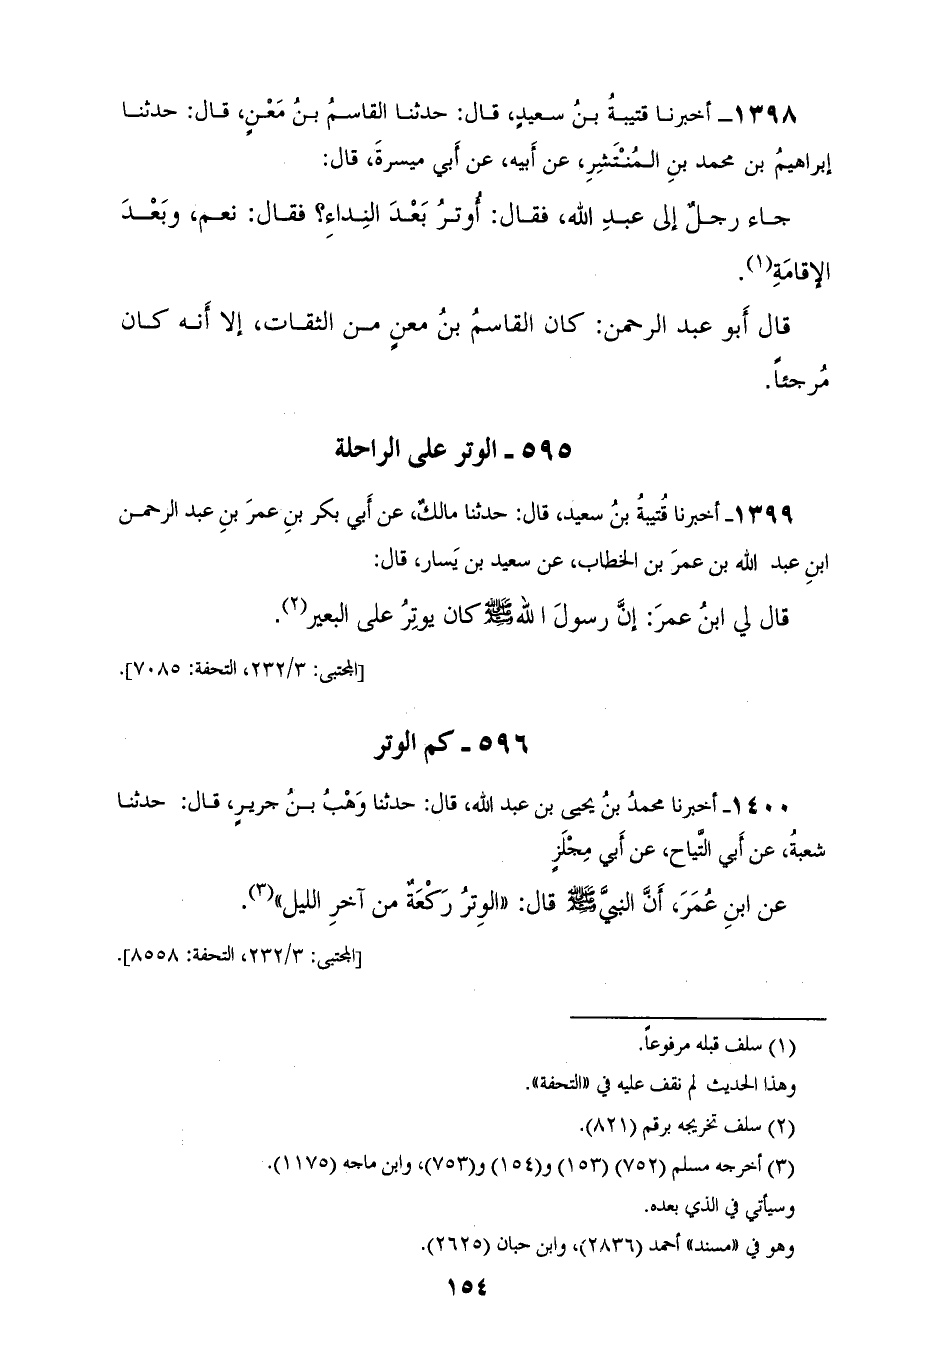 ١٣٩٨ـ أخبرنا قتيبةُ بنُ سعيدٍ، قال: حدثنا القاسمُ بنُ مَعْنٍ، قال: حدثنا
إبراهيمُ بن محمد بنِ المُنْتَشِرِ، عن أبيه، عن أبي ميسرةَ، قال:
جاء رجلٌ إلى عبدِ الله، فقال: أُوترُ بَعْدَ النِداءِ؟ فقال: نعم، وبَعْدَ
الإقامَةِ(١).
قال أَبو عبد الرحمن: كان القاسمُ بنُ معنٍ من الثقات، إلا أَنه كان
مُرجئاً.
٥٩٥ ـ الوتر على الراحلة
١٣٩٩ـ أخبرنا قُتيبةُ بنُ سعيد، قال: حدثنا مالكٌ، عن أَبي بكر بنِ عمرَ بنِ عبد الرحمن
ابنِ عبد الله بن عمرَ بن الخطاب، عن سعيد بن يَسار، قال:
قال لي ابنُ عمرَ: إنَّ رسولَ الله ﷺ كان يوتِرُ على البعير(٢).
[المجتبى: ٢٣٢/٣، التحفة: ٧٠٨٥].
٥٩٦ ـ كم الوتر
١٤٠٠ـ أخبرنا محمدُ بنُ يحيى بن عبد الله، قال: حدثنا وَهْبُ بنُ جريرٍ، قال: حدثنا
شعبةُ، عن أَبي التَّياح، عن أَبي مِجْلَزٍ
عن ابنِ عُمَرَ، أَنَّ النبيَّ ﷺ قال: «الوِترُ رَكْعَةٌ من آخرِ الليل»(٣).
[المجتبى: ٢٣٢/٣، التحفة: ٨٥٥٨].
(١) سلف قبله مرفوعاً.
وهذا الحديث لم نقف عليه في «التحفة».
(٢) سلف تخريجه برقم (٨٢١).
(٣) أخرجه مسلم (٧٥٢) (١٥٣) و(١٥٤) و(٧٥٣)، وابن ماجه (١١٧٥).
وسيأتي في الذي بعده.
وهو في «مسند» أحمد (٢٨٣٦)، وابن حبان (٢٦٢٥).
١٥٤